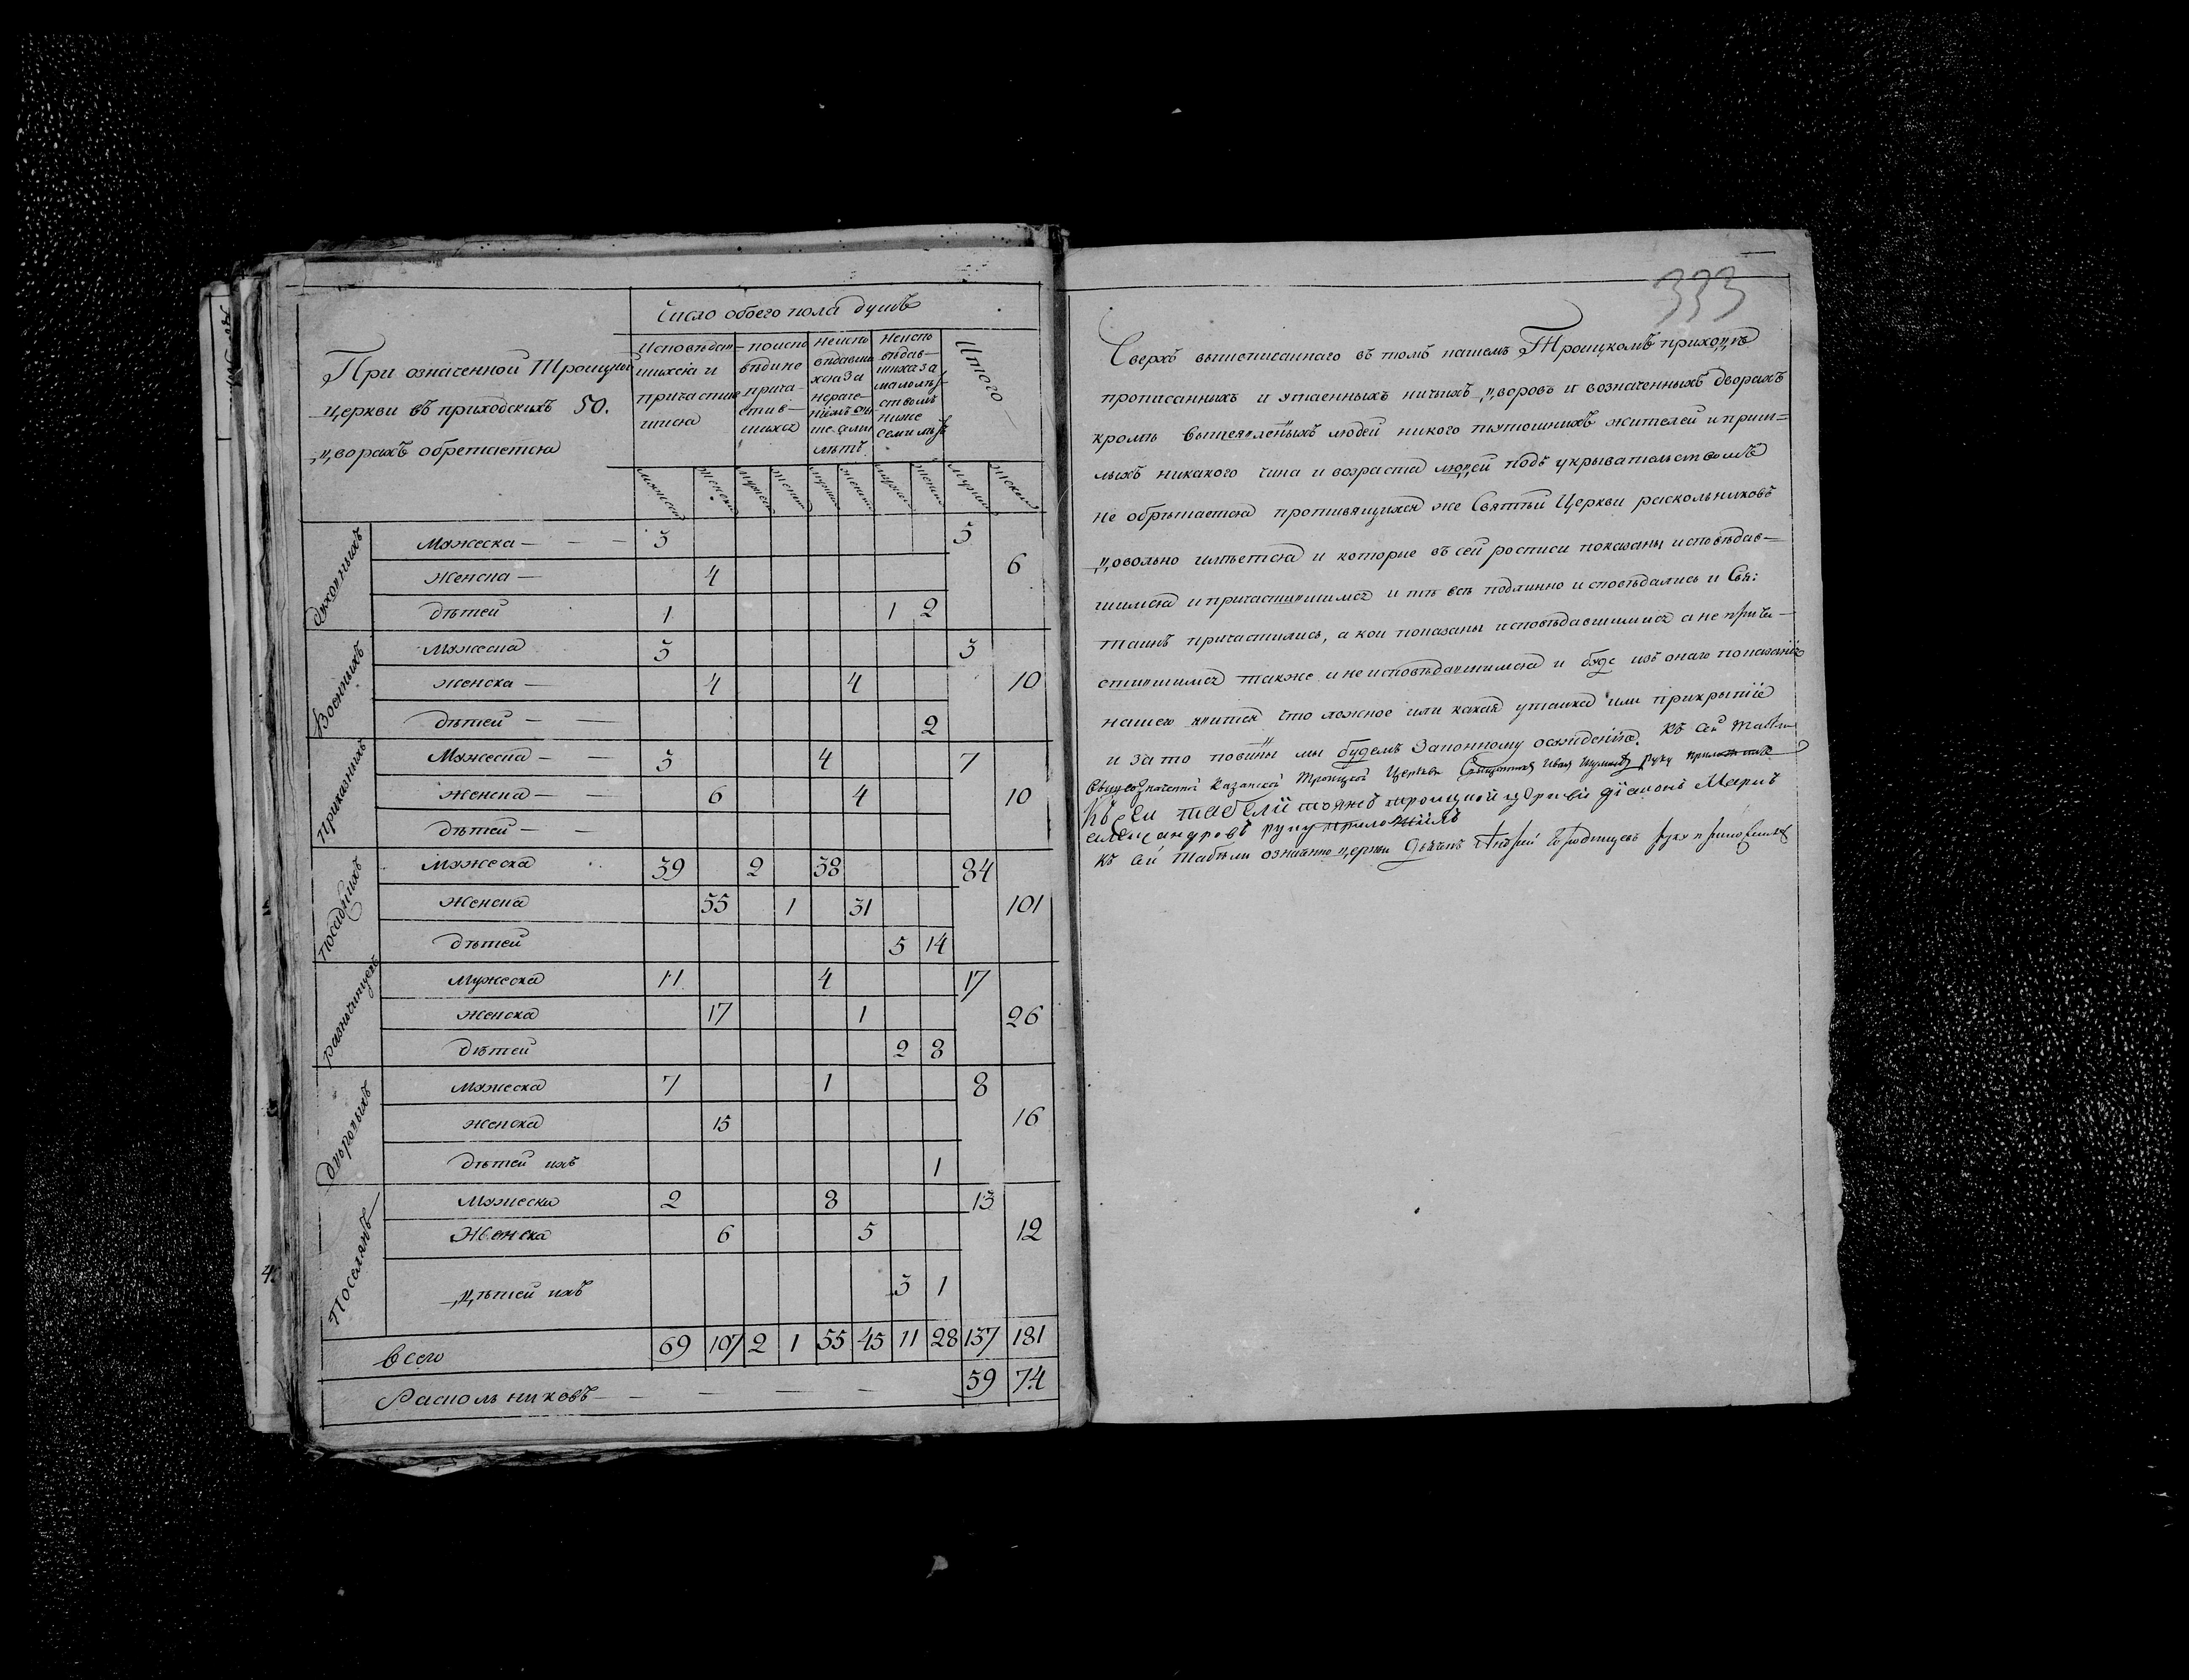 Число обоего пола душъ
При означенной Троицкой
церкви въ приходскихъ 50.
дворахъ обретается
Исповѣдав- шихся и причастив- шихся
поиспо вѣди не прича- стив- шихся
неиспо вѣдавши хся за нераче- ніемъ
неиспо вѣдав- шихся за малолѣт ствомъ ниже семи лѣтъ
Итого
мужеска женска мужеска женска мужеска женска мужеска женска мужеска женска
Духовныхъ
Мужеска 3 5
женска 4 6
дѣтей 1 1 2
Военныхъ
Мужеска 3 3
женска 4 4 10
дѣтей 2
Приказныхъ
Мужеска 3 4 7
женска 6 4 10
дѣтей
Посадцкихъ
Мужеска 39 2 38 84
женска 55 1 31 101
дѣтей 5 14
разночинцевъ
мужеска 11 4 17
женска 17 1 26
дѣтей 2 8
дворовыхъ
мужеска 7 1 8
женска 15 16
дѣтей ихъ 1
Поселянъ
Мужеска 2 8 13
Женска 6 5 12
дѣтей ихъ 3 1
всего 69 107 2 1 55 45 11 28 137 181
Раскольниковъ 59 74
333
Сверхъ вышеписаннаго въ томъ нашемъ Троицкомъ приходѣ
прописанныхъ и утаенныхъ ничьихъ дворовъ и возначенныхъ дворахъ
кромѣ вышеявленныхъ людей никого тутошнихъ жителей и приш=
лыхъ никакого чина и возраста людей подъ укрывательствомъ
не обрѣтается противящихся же Святѣй Церкви раскольниковъ
довольно имѣется и которые въ сей росписи показаны исповѣдав=
шимися и причастившимися и тѣ всѣ подлинно исповѣдались и Свя:
таинъ причастились, а кои показаны исповѣдавшимися а не прича-
стившимися также и не исповѣдавшимися и буде изъ онаго показанія
нашего явится что ложное или какая утайка или прикрытіе
и за то повинны мы будемъ законному осужденію. Къ сей табели
вышеозначенной Казанской Троицкой Церкви Священникъ Иванъ руку приложилъ
Къ сеи табели тояжъ троицкой церкви діаконъ Марко
александровъ руку приложилъ
Къ сей табели означенно церкви дьячекъ Андрей руку приложилъ